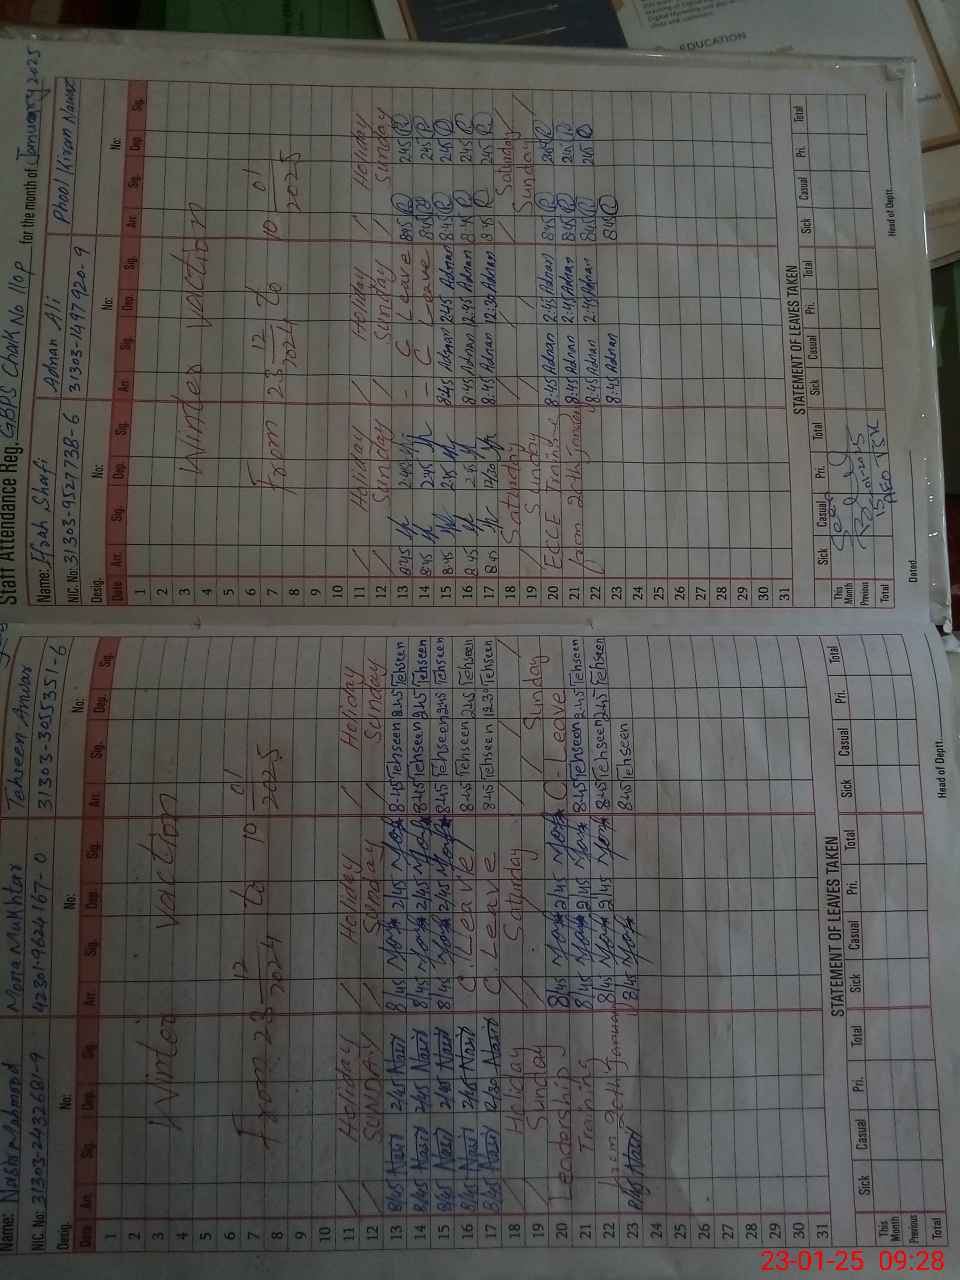 Staff Attendance Reg. GBPS Chak No 110p for the month of January 2025
Name: Nasir Mahmood Mona Mukhtar Tehseen Anwar
NIC. No: 31303-2432681-9 42301-9624167-0 31303-3055351-6
Desig. No: No: No:
Date Arr. Sig. Dep. Sig. Arr. Sig. Dep. Sig. Arr. Sig. Dep. Sig.
1
2
3 Winter Vaction
4
5
6
7 From 23 12 2024 to 10 01 2025
8
9
10
11 Holiday Holiday Holiday
12 SUNDAY Sunday Sunday
13 8/45 Nasir 2/45 Nasir 8/45 2/45 8-45 Tehseen 2:45 Tehseen
14 8/45 Nasir 2/45 Nasir 8/45 2/45 8:45 Tehseen 2:45 Tehseen
15 8/45 Nasir 2/45 Nasir 8/45 2/45 8:45 Tehseen 2:45 Tehseen
16 8/45 Nasir 2/45 Nasir C. Leave 8:45 Tehseen 2:45 Tehseen
17 8/45 Nasir 12/30 Nasir C. Leave 8:45 Tehseen 12:30 Tehseen
18 Holiday Saturday
19 Sunday Sunday
20 Leadership 8/45 2/45 C-Leave
21 Training 8/45 2/45 8:45 Tehseen 2:45 Tehseen
22 from 20th January 8/45 2/45 8:45 Tehseen 2:45 Tehseen
23 8/45 Nasir 8/45 8:45 Tehseen
24
25
26
27
28
29
30
31
STATEMENT OF LEAVES TAKEN
Sick Casual Pri. Total Sick Casual Pri. Total Sick Casual Pri. Total
This Month
Previous
Total
Head of Deptt.
Name: Ifrah Shafi Adnan Ali Phool Kiran Nawaz
NIC. No: 31303-9527738-6 31303-1497920-9
Desig. No: No: No:
Date Arr. Sig. Dep. Sig. Arr. Sig. Dep. Sig. Arr. Sig. Dep. Sig.
1
2
3 Winter Vaction
4
5
6
7 From 23 12 2024 to 10 01 2025
8
9
10
11 Holiday Holiday Holiday
12 Sunday Sunday Sunday
13 8:45 2:45 - C Leave 8:45 2:45
14 8:45 2:45 - C Leave 8:45 2:45
15 8:45 2:45 8:45 Adnan 2:45 Adnan 8:45 2:45
16 8:45 2:45 8:45 Adnan 2:45 Adnan 8:45 2:45
17 8:45 12/30 8:45 Adnan 12:30 Adnan 8:45 2:45
18 Saturday Saturday
19 Sunday Sunday
20 ECCE Training 8:45 Adnan 2:45 Adnan 8:45 2:45
21 from 20th January 8:45 Adnan 2:45 Adnan 8:45 2:45
22 8:45 Adnan 2:45 Adnan 8:45 2:45
23 8:45 Adnan 8:45
24
25
26
27
28
29
30
31
STATEMENT OF LEAVES TAKEN STATEMENT OF LEAVES TAKEN
Sick Casual Pri. Total Sick Casual Pri. Total Sick Casual Pri. Total
This Month
Previous
Total
Seen
15-01-2025
AEO TSK
Dated
Head of Deptt.
EDUCATION
23-01-25 09:28